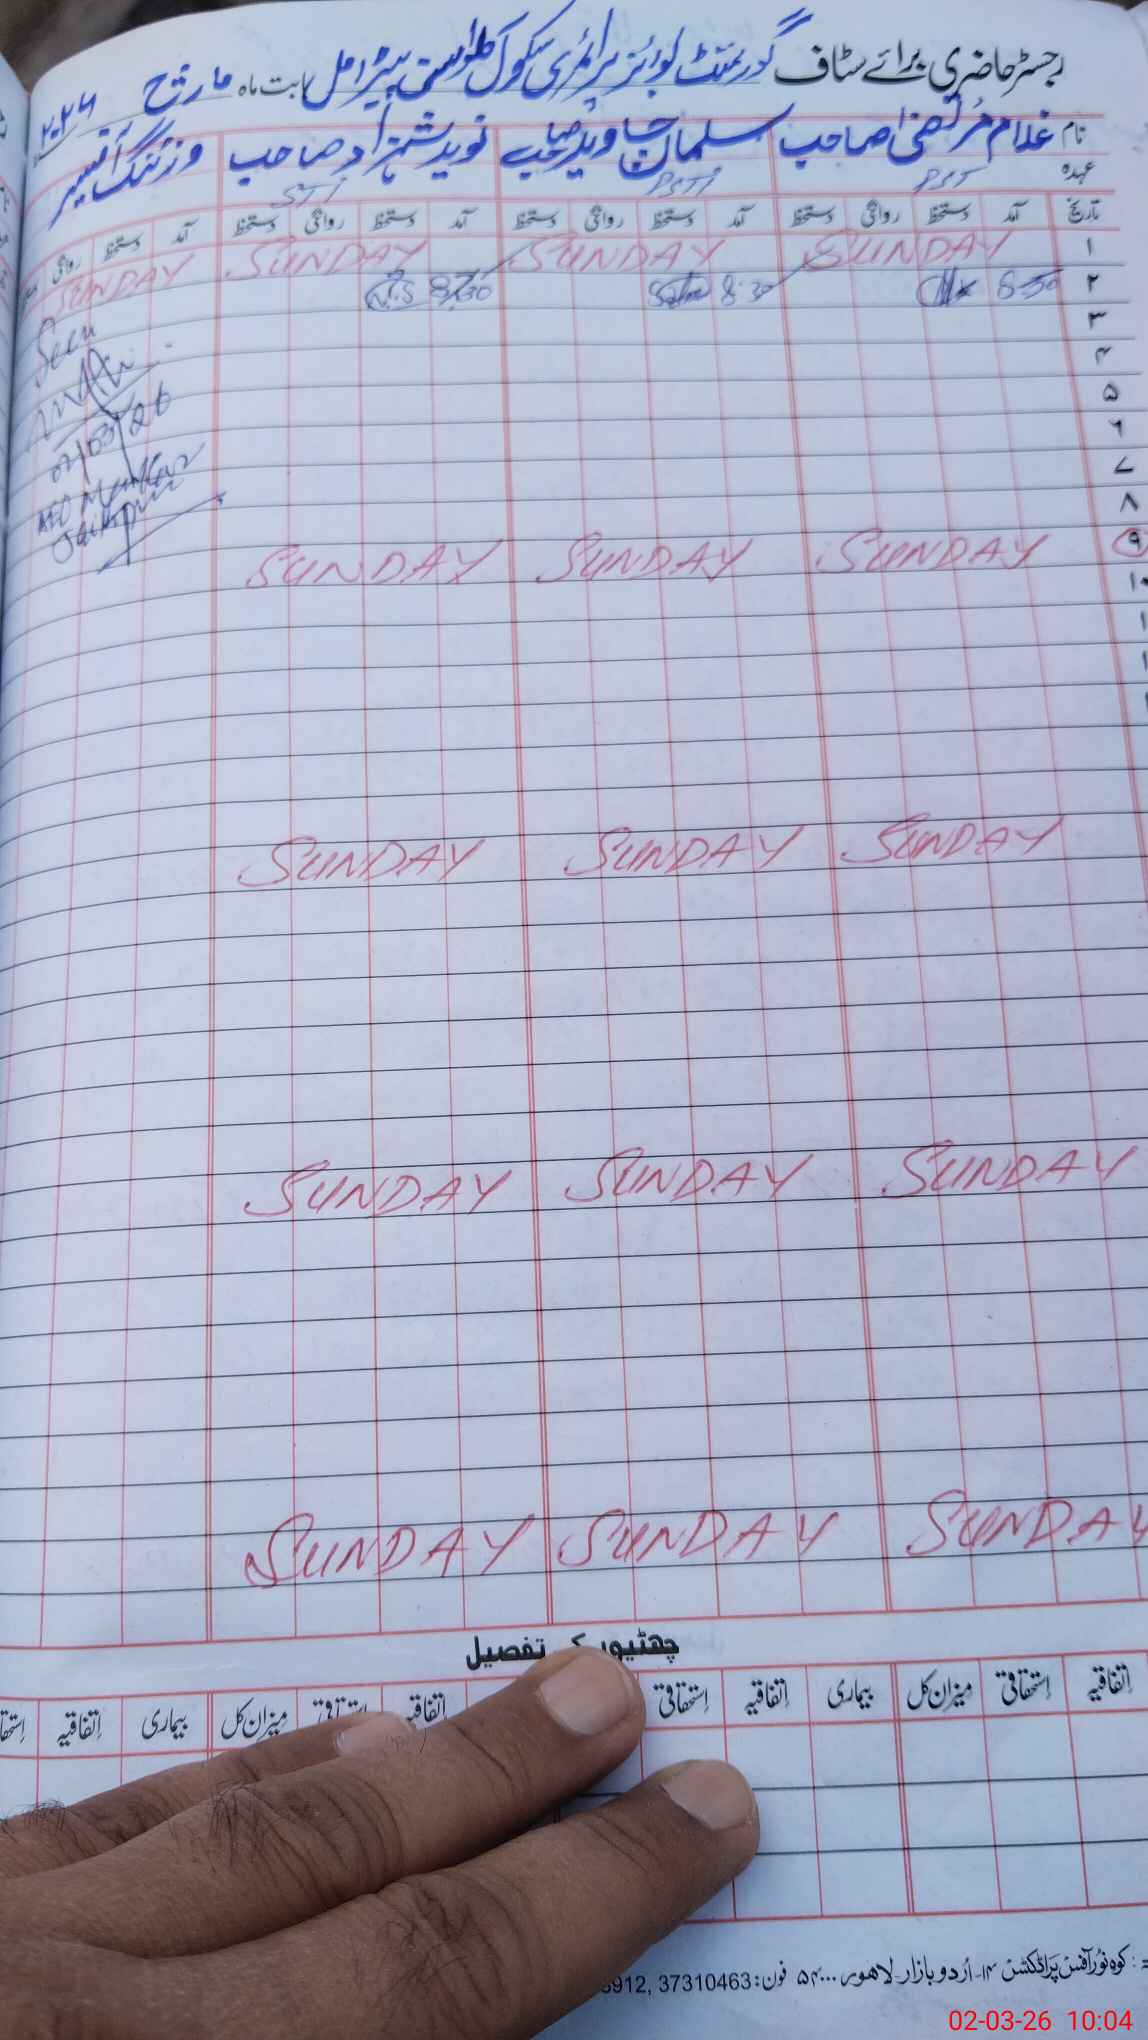 رجسٹر حاضری برائے سٹاف گورنمنٹ بوائز پرائمری سکول بابت ماہ مارچ ۲۰۲۶
نام غلام مرتضیٰ صاحب سلمان جاوید صاحب نوید شہزاد صاحب وزٹنگ آفیسر
عہدہ PST PSTI STI
تاریخ آمد دستخط روانگی دستخط آمد دستخط روانگی دستخط آمد دستخط روانگی دستخط آمد دستخط روانگی
۱ SUNDAY SUNDAY SUNDAY SUNDAY
۲ 8:30 8:30
۳
Seen
۴
۵
02/03/26
۶
۷
AEO
۸
۹ SUNDAY SUNDAY SUNDAY
۱۰
SUNDAY SUNDAY SUNDAY
SUNDAY SUNDAY SUNDAY
SUNDAY SUNDAY SUNDAY
چھٹیوں کی تفصیل
اتفاقیہ استحقاقی میزان کل بیماری اتفاقیہ استحقاقی اتفاقیہ استحقاقی میزان کل بیماری اتفاقیہ
کوہ نور آفس پراڈکشن ۱۴-اردو بازار لاہور ۵۴۰۰۰ فون: 37310463 ,5912
02-03-26 10:04